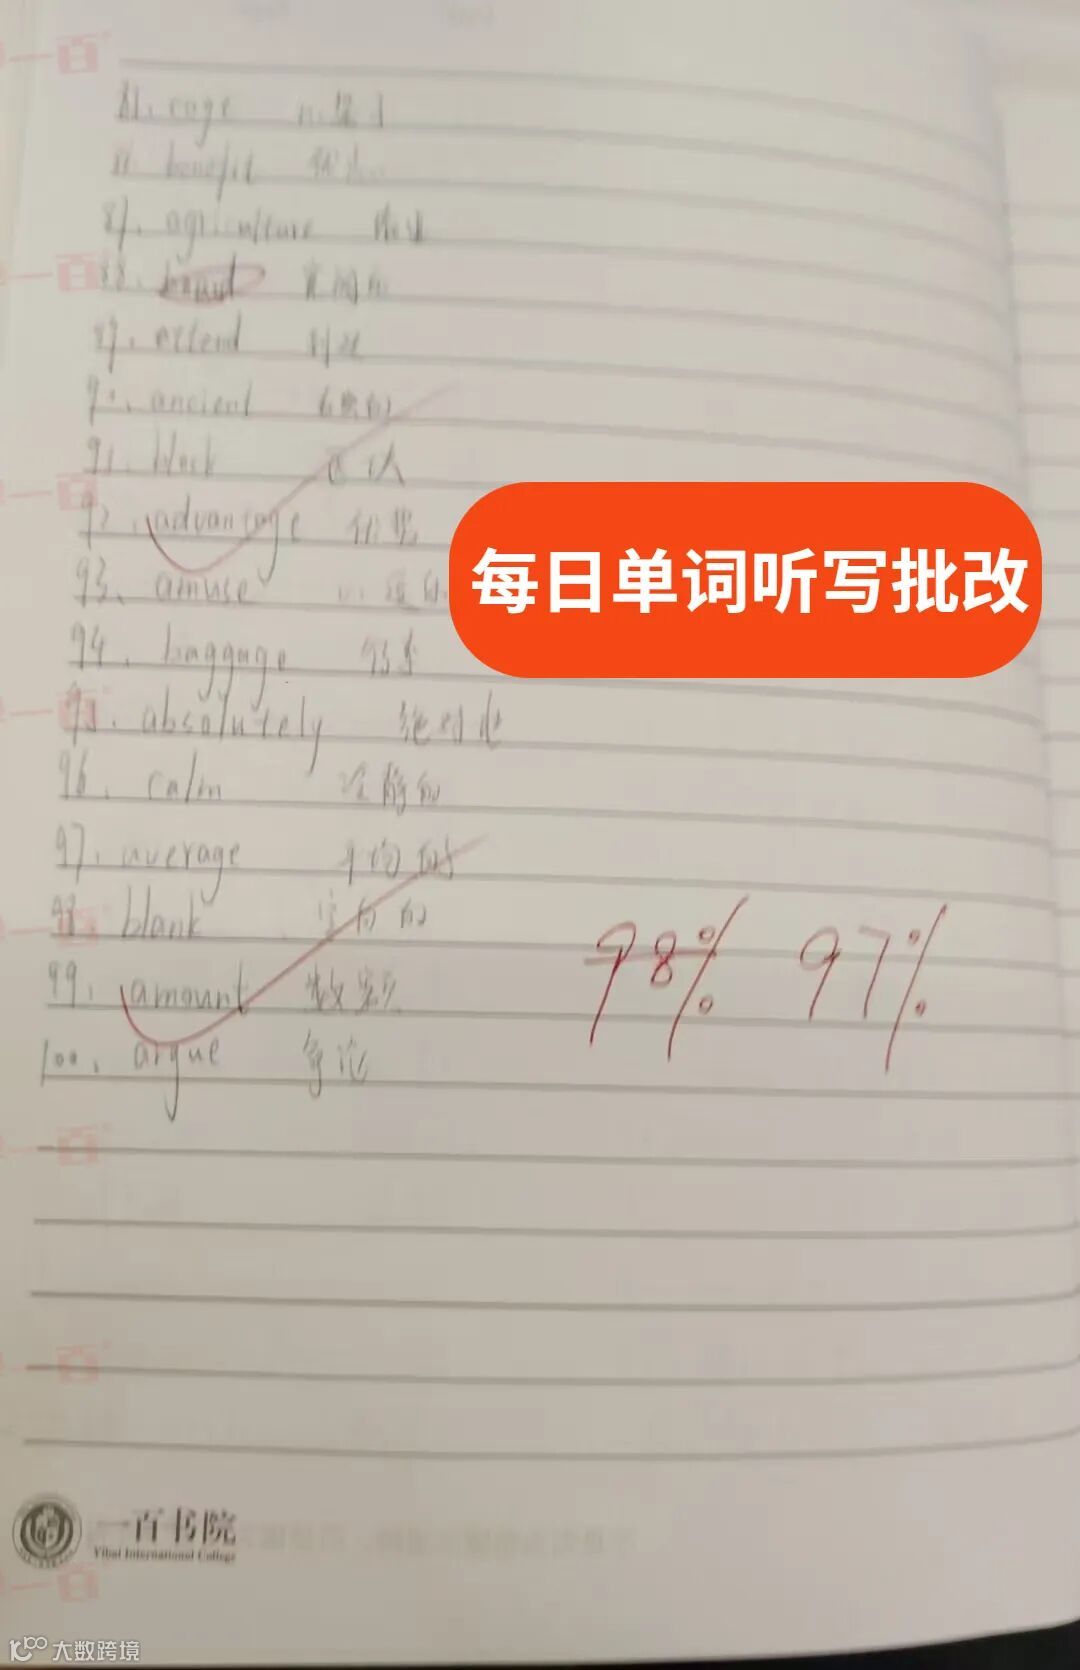 cage
benefit
agriculture 农业
88.
89. extend
90. ancient 古典的
91. block
92. advantage 优势
93. amuse
94. baggage 行李
95. absolutely 绝对地
96. calm 冷静的
97. average 平均的
98. blank 空白的
99. amount 数额
100. argue 争论
每日单词听写批改
98% 97%
一百书院
Yibai International College
大数跨境